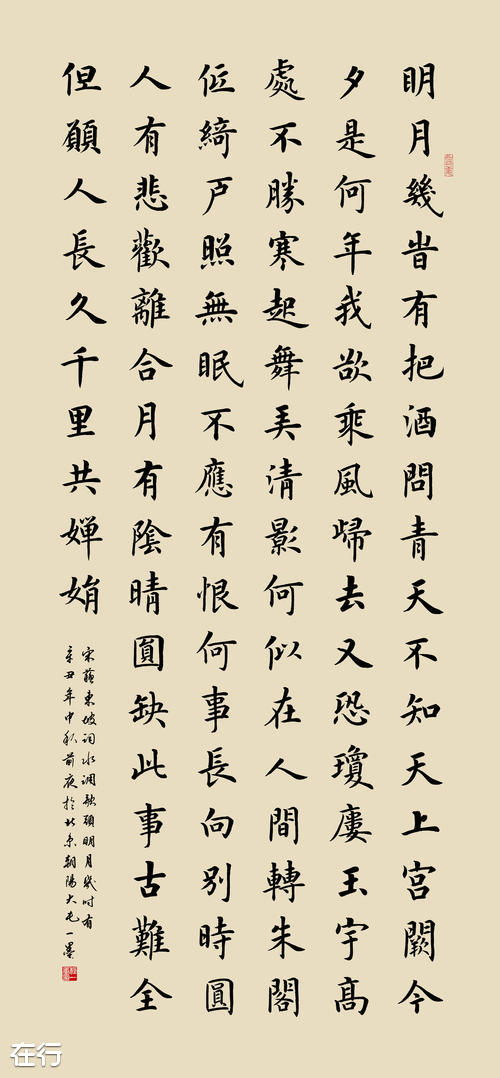 明月幾旹有把酒問青天不知天上宮闕今
夕是何年我欲乘風歸去又恐瓊廔玉宇高
處不勝寒起舞弄清影何似在人間轉朱閣
低綺戶照無眠不應有恨何事長向別時圓
人有悲歡離合月有陰晴圓缺此事古難全
但願人長久千里共嬋娟
宋蘇東坡詞水調歌頭明月幾时有
辛丑年中秋前夜於北京朝陽大屯一墨
在行